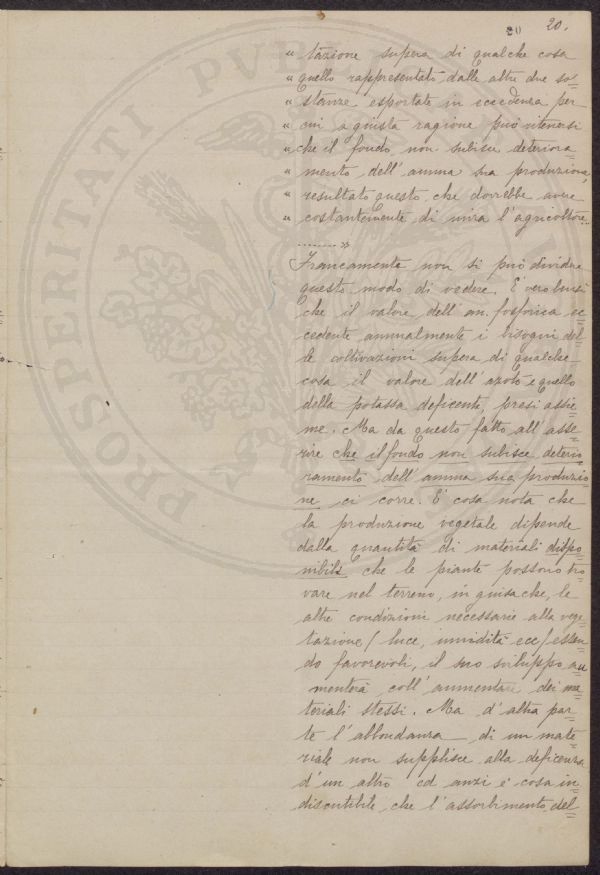 20 20.
" tazione supera di qualche cosa
" quello rappresentato dalle altre due so=
" stanze esportate in eccedenza per
" cui a giusta ragione può ritenersi
" che il fondo non subisce deteriora=
" mento dell'annua sua produzione,
" resultato questo che dovrebbe avere
" costantemente di mira l'agricoltore...
........ »
Francamente non si può dividere
questo modo di vedere. E' vero bensì
che il valore dell'an. fosforica ec=
cedente annualmente i bisogni del=
le coltivazioni supera di qualche
cosa il valore dell'azoto e quello
della potassa deficente, presi assie=
me. Ma da questo fatto, all'asse=
rire che il fondo non subisce deterio
ramento dell'annua sua produzio
ne ci corre. E' cosa nota che
la produzione vegetale dipende
dalla quantità di materiali dispo=
nibili che le piante possono tro
vare nel terreno, in guisa che, le
altre condizioni necessarie alla vege=
tazione (luce, umidità ecc) essen=
do favorevoli, il suo sviluppo au
menterà coll'aumentare dei ma=
teriali stessi. Ma d'altra par=
te l'abbondanza di un mate=
riale non supplisce alla deficenza
d'un altro ed anzi è cosa in=
discutibile che l'assorbimento del=
PROSPERITATI PVBLI